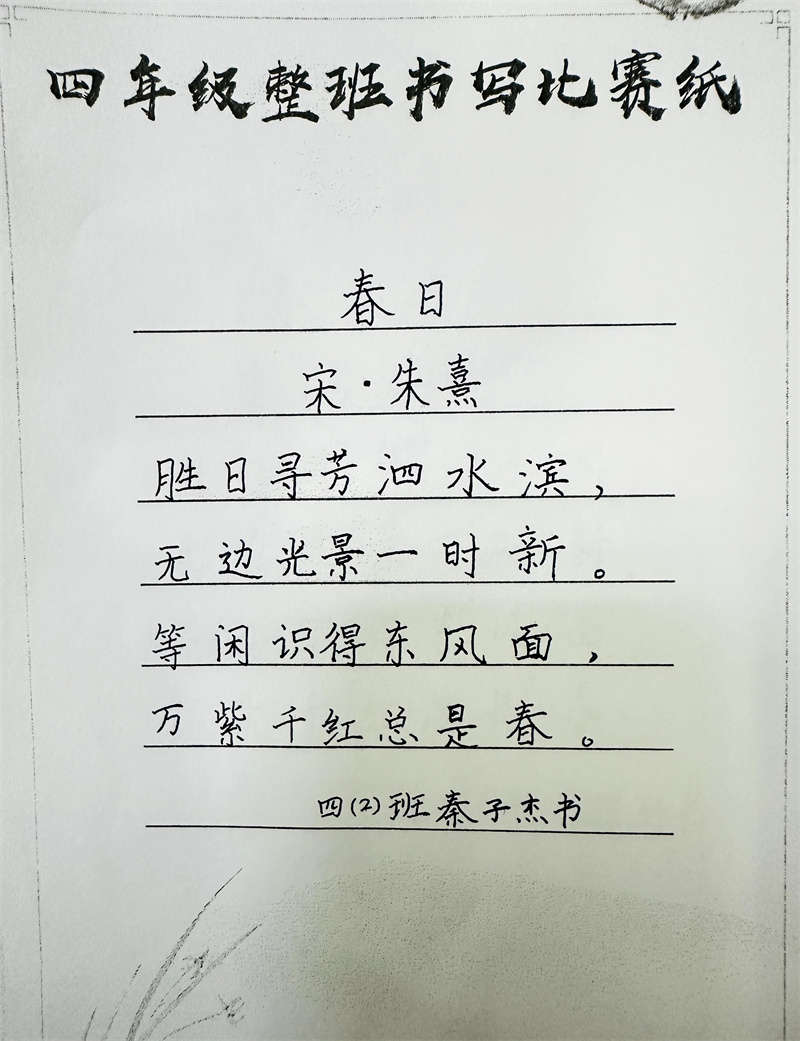 四年级整班书写比赛纸
春日
宋·朱熹
胜日寻芳泗水滨，
无边光景一时新。
等闲识得东风面，
万紫千红总是春。
四(2)班秦子杰书